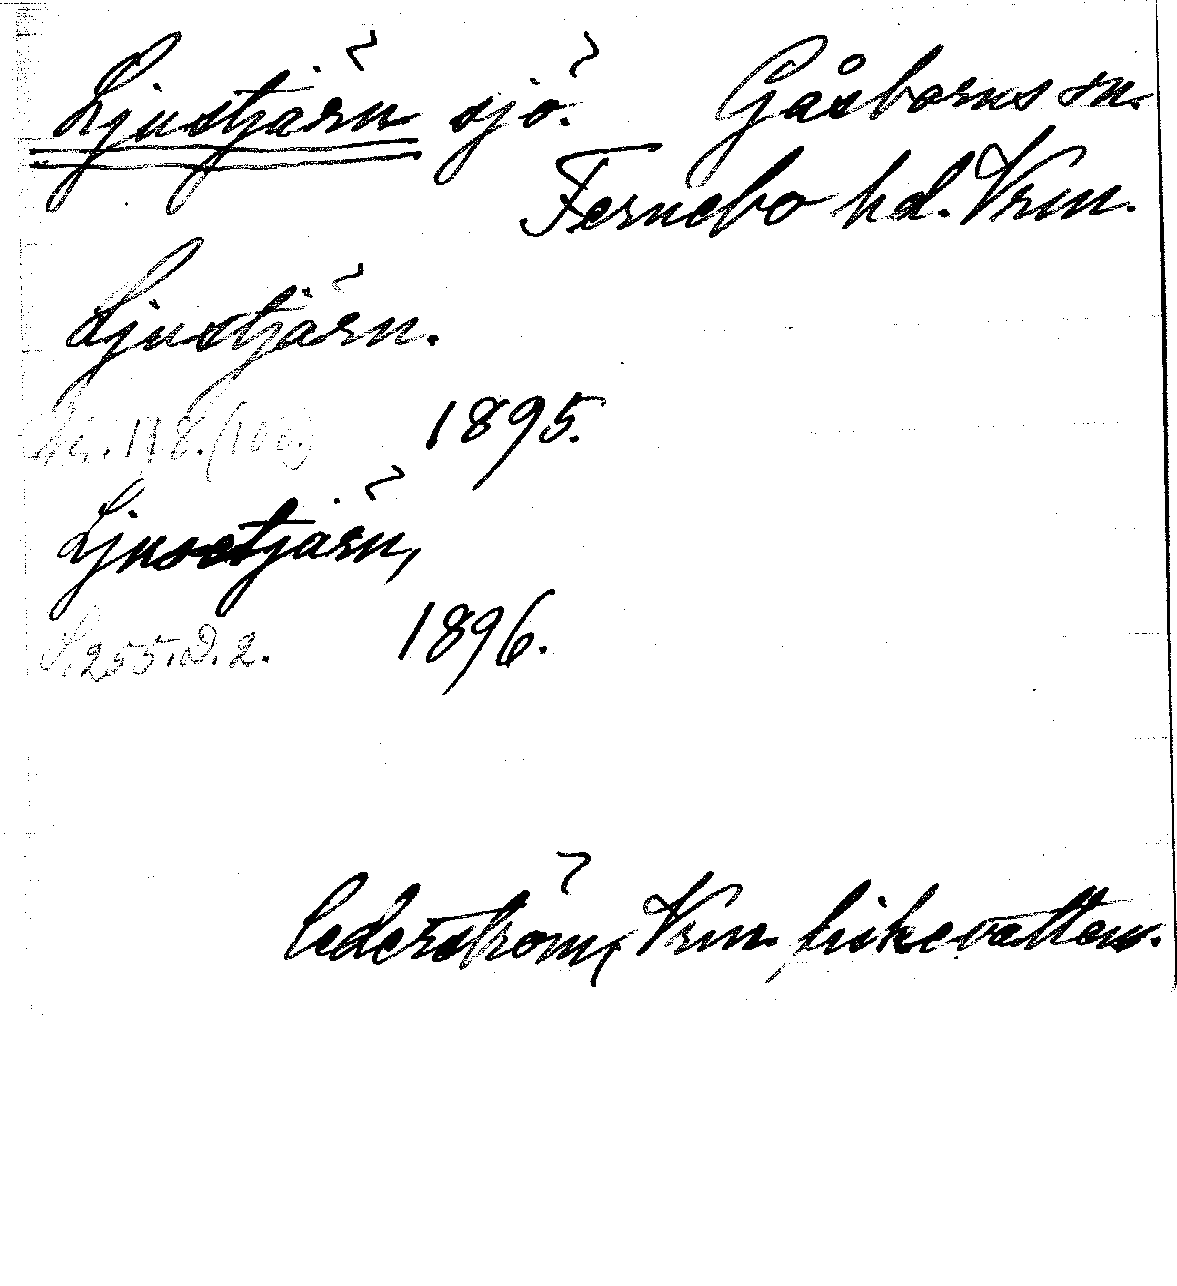 Ljustjärn sjö. Gåsborns sn.
Fernebo hd. Vrm.
Ljustjärn.
1895.
Ljustjärn,
S. 255. D. 2. 1896.
Cederström, Vrm fiskevatten.